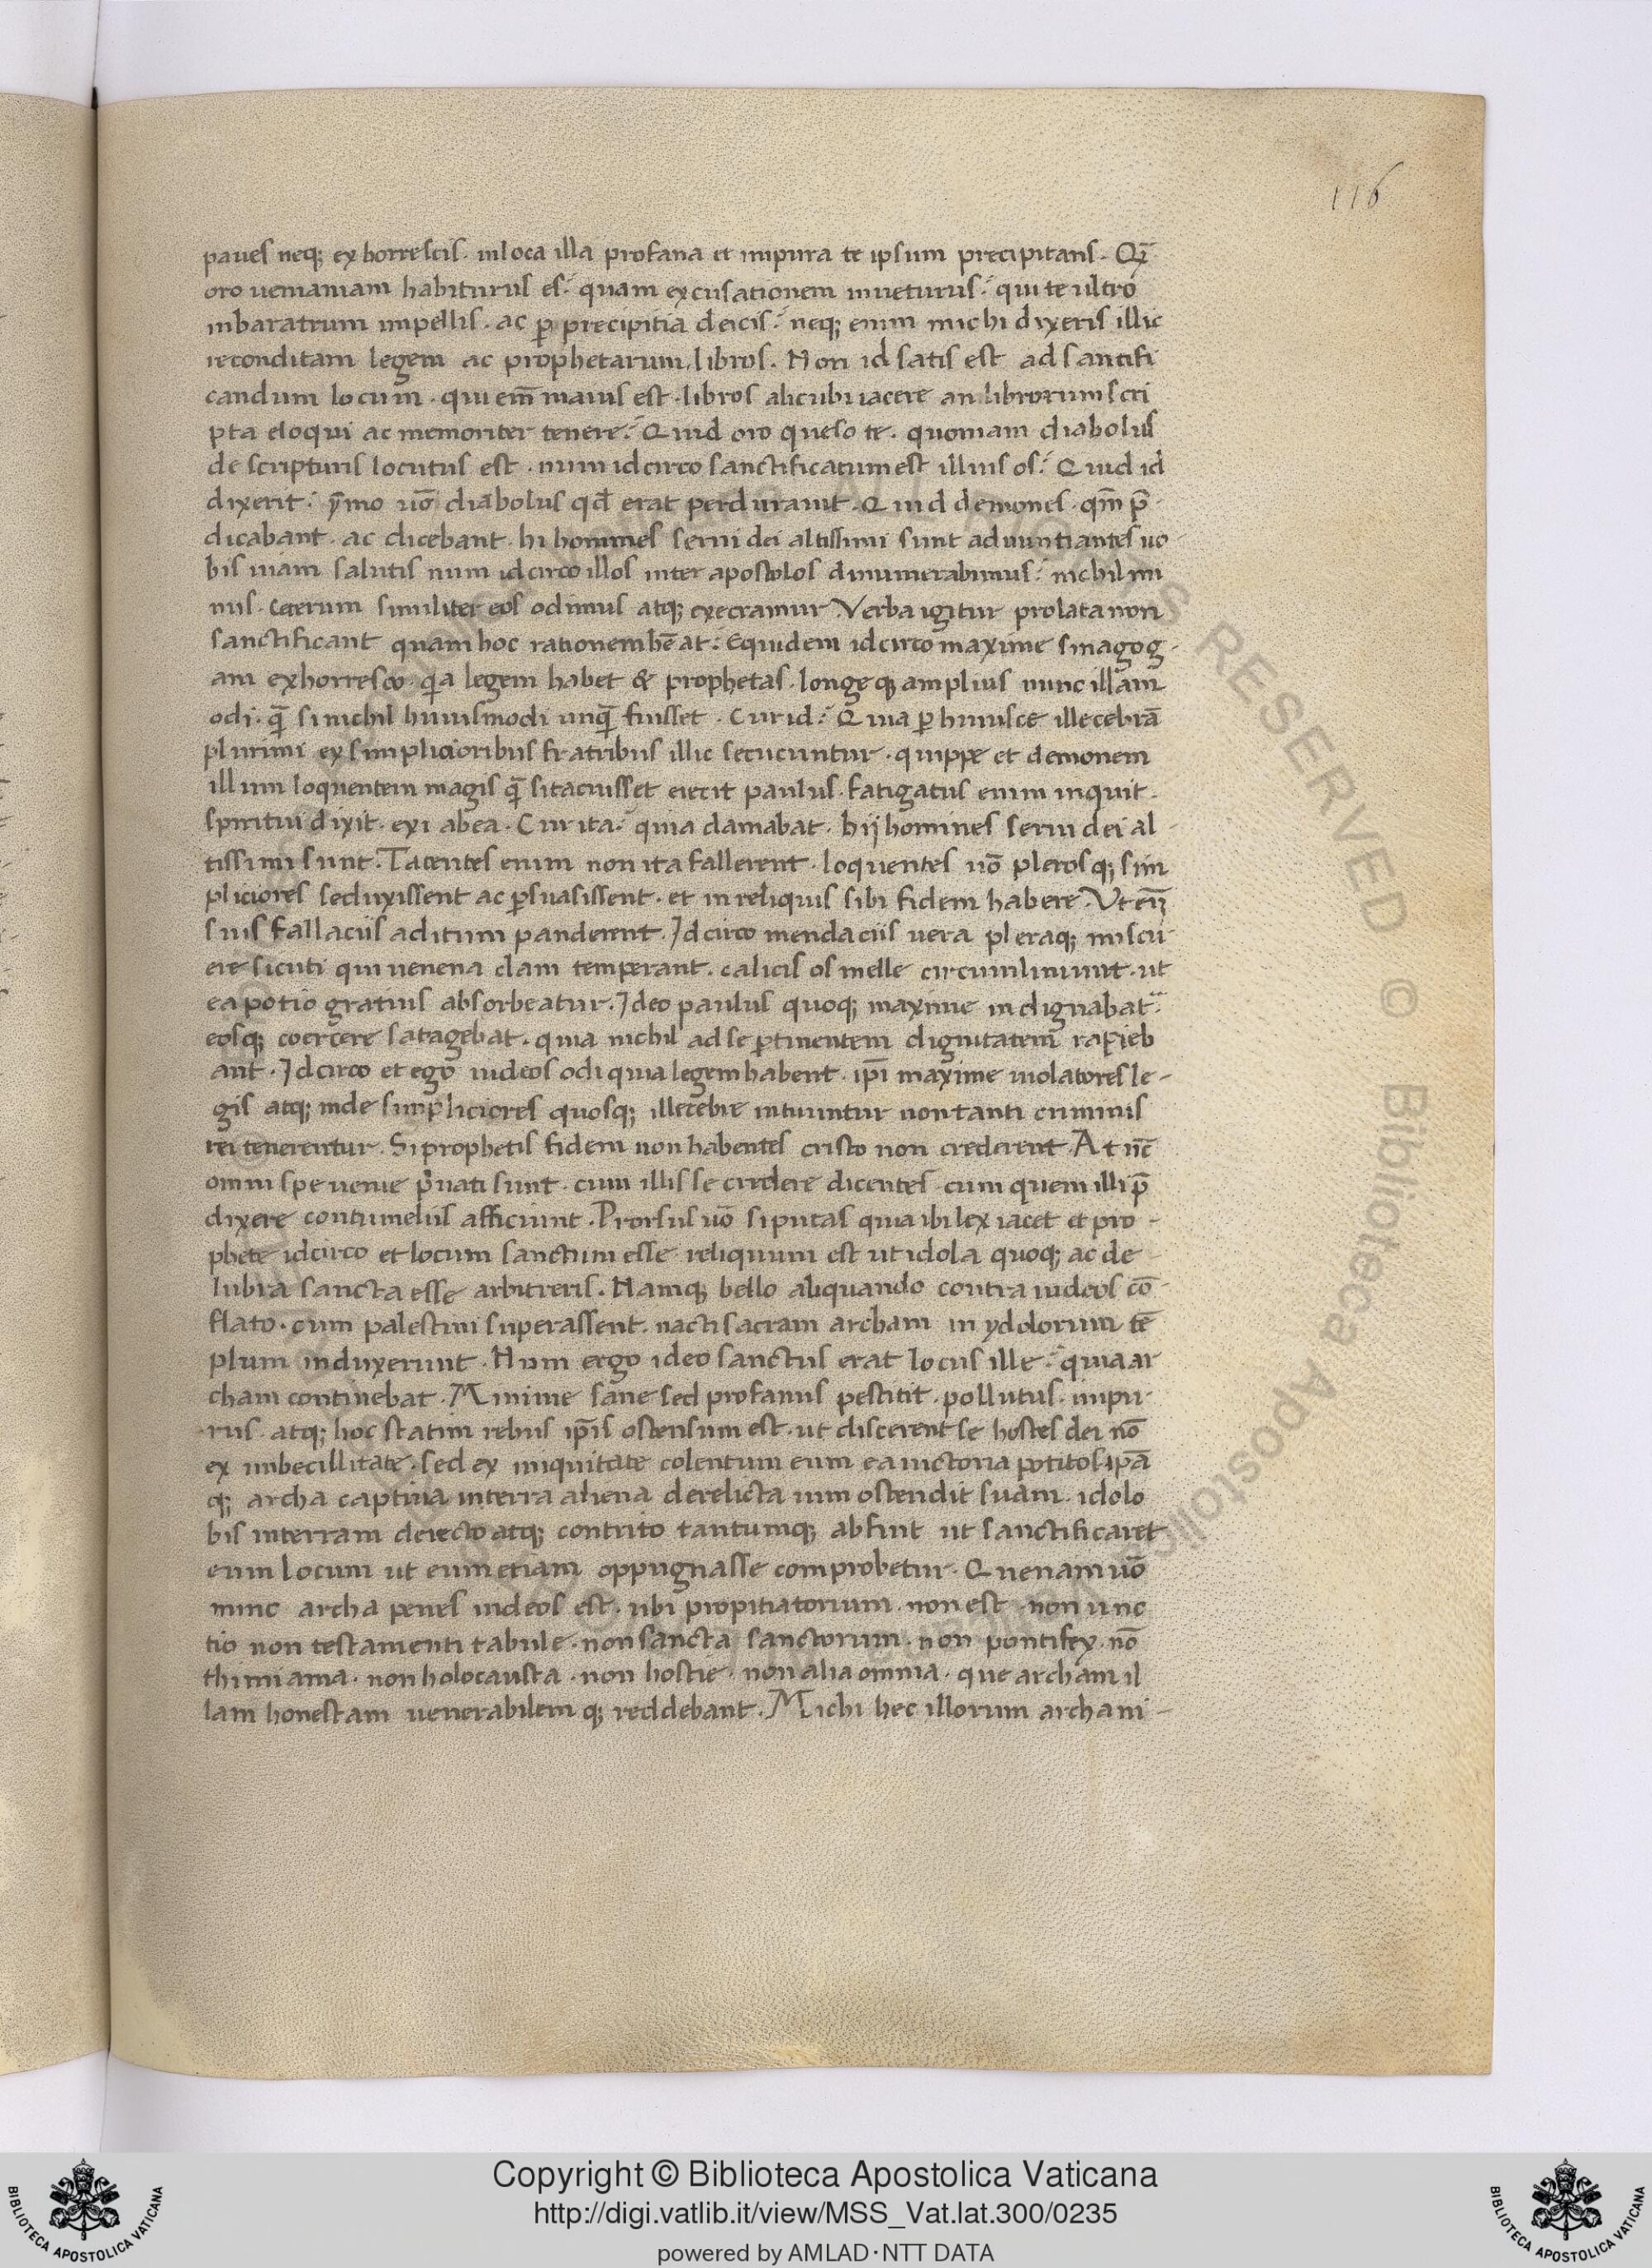 116
paues neq; exhorrescis. in loca illa profana et impura te ipsum precipitans. Qͣ
oro ueniam habiturus es? quam excusationem inueturus? qui te ultro
in baratrum impellis. ac p̱ precipitia deicis? neq; enim michi dixeris illic
reconditam legem ac prophetarum libros. Non id satis est ad santifi
candum locum. qui em̄ maius est. libros alicubi iacere an librorum scri
pta eloqui ac memoriter tenere? Quid oro queso te. quoniam diabolus
de scripturis locutus est. num idcirco sanctificatum est illius os? Quid id
dixerit? ȳmo uō diabolus qđ erat perdurauit. Quid demones. qm̄ p̄
dicabant. ac dicebant. hi homines serui dei altissimi sunt adnuntiantes uo-
bis uiam salutis num idcirco illos inter apostolos dinumerabimus? nichil mi
nus. ceterum similiter eos odimus atq; execramur. Verba igitur prolata non
sanctificant quam hoc rationem hēat? Equidem idcirco maxime sinagog-
am exhorresco. qia legem habet & prophetas. longe q; amplius nunc illam
odi. q̄ si nichil huiusmodi unq̄ fuisset. Cur id? Quia p̱ huiusce illecebrā
plurimi ex simplicioribus fratribus illic secucuntur. quippe et demonem
illum loquentem magis q̄ si tacuisset eiecit paulus. fatigatus enim inquit.
spiritui dixit. exi ab ea. Cur ita? quia clamabat. hij homines serui dei al
tissimi sunt. Tacentes enim non ita fallerent. loquentes uō plerosq; sim
pliciores seduxissent ac p̱suasissent. et in reliquis sibi fidem habere. Ut
suis fallaciis aditum panderent. Idcirco mendaciis uera pleraq; miscu-
ere sicuti qui uenena clam temperant. calicis os melle circumliniunt. ut
ea potio gratius absorbeatur. Ideo paulus quoq; maxime indignabat᷑
eosq; coercere satagebat. quia nichil ad se p̱tinentem dignitatem rapieb
ant. Idcirco et ego iudeos odi quia legem habent. ip̄i maxime uiolatores le-
gis atq; inde simpliciores quosq; illecebre intuuntur non tanti criminis
rei tenerentur. Si prophetis fidem non habentes cristo non crederent. At nc̄
omni spe uenie priuati sunt. cum illis se credere dicentes. cum quem illi p̄
dixere contumeliis afficiunt. Prorsus uō si putas quia ibi lex iacet et pro-
phete idcirco et locum sanctum esse reliquum est ut idola quoq; ac de-
lubra sancta esse arbitreris. Namq; bello aliquando contra iudeos cō-
flato. cum palestini superassent. nacti sacram archam in ydolorum tē
plum induxerunt. Num ergo ideo sanctus erat locus ille? quia ar
cham continebat. Minime sane sed profanus pestitit. pollutus. impu-
rus. atq; hoc statim rebus ip̄is ostensum est. ut discerent se hostes dei nō
ex imbecillitate. sed ex iniquitate colentum eum ea uictoria potitos. ip̄a
q; archa captiua in terra aliena derelicta uim ostendit suam. idolo
bis in terram deiecto atq; contrito tantumq; abfuit ut sanctificaret
eum locum ut eum etiam oppugnasse comprobetur. Quenam uō
nunc archa penes iudeos est. ubi propitiatorium. non est. non unc
tio non testamenti tabule. non sancta sanctorum. non pontifex. nō
thimiama. non holocausta. non hostie. non alia omnia. que archam il
lam honestam uenerabilem q; reddebant. Michi hec illorum archa ni-
ALL RIGHTS RESERVED © Biblioteca Apostolica Vaticana
Copyright © Biblioteca Apostolica Vaticana
http://digi.vatlib.it/view/MSS_Vat.lat.300/0235
powered by AMLAD·NTT DATA
BIBLIOTECA APOSTOLICA VATICANA
BIBLIOTECA APOSTOLICA VATICANA